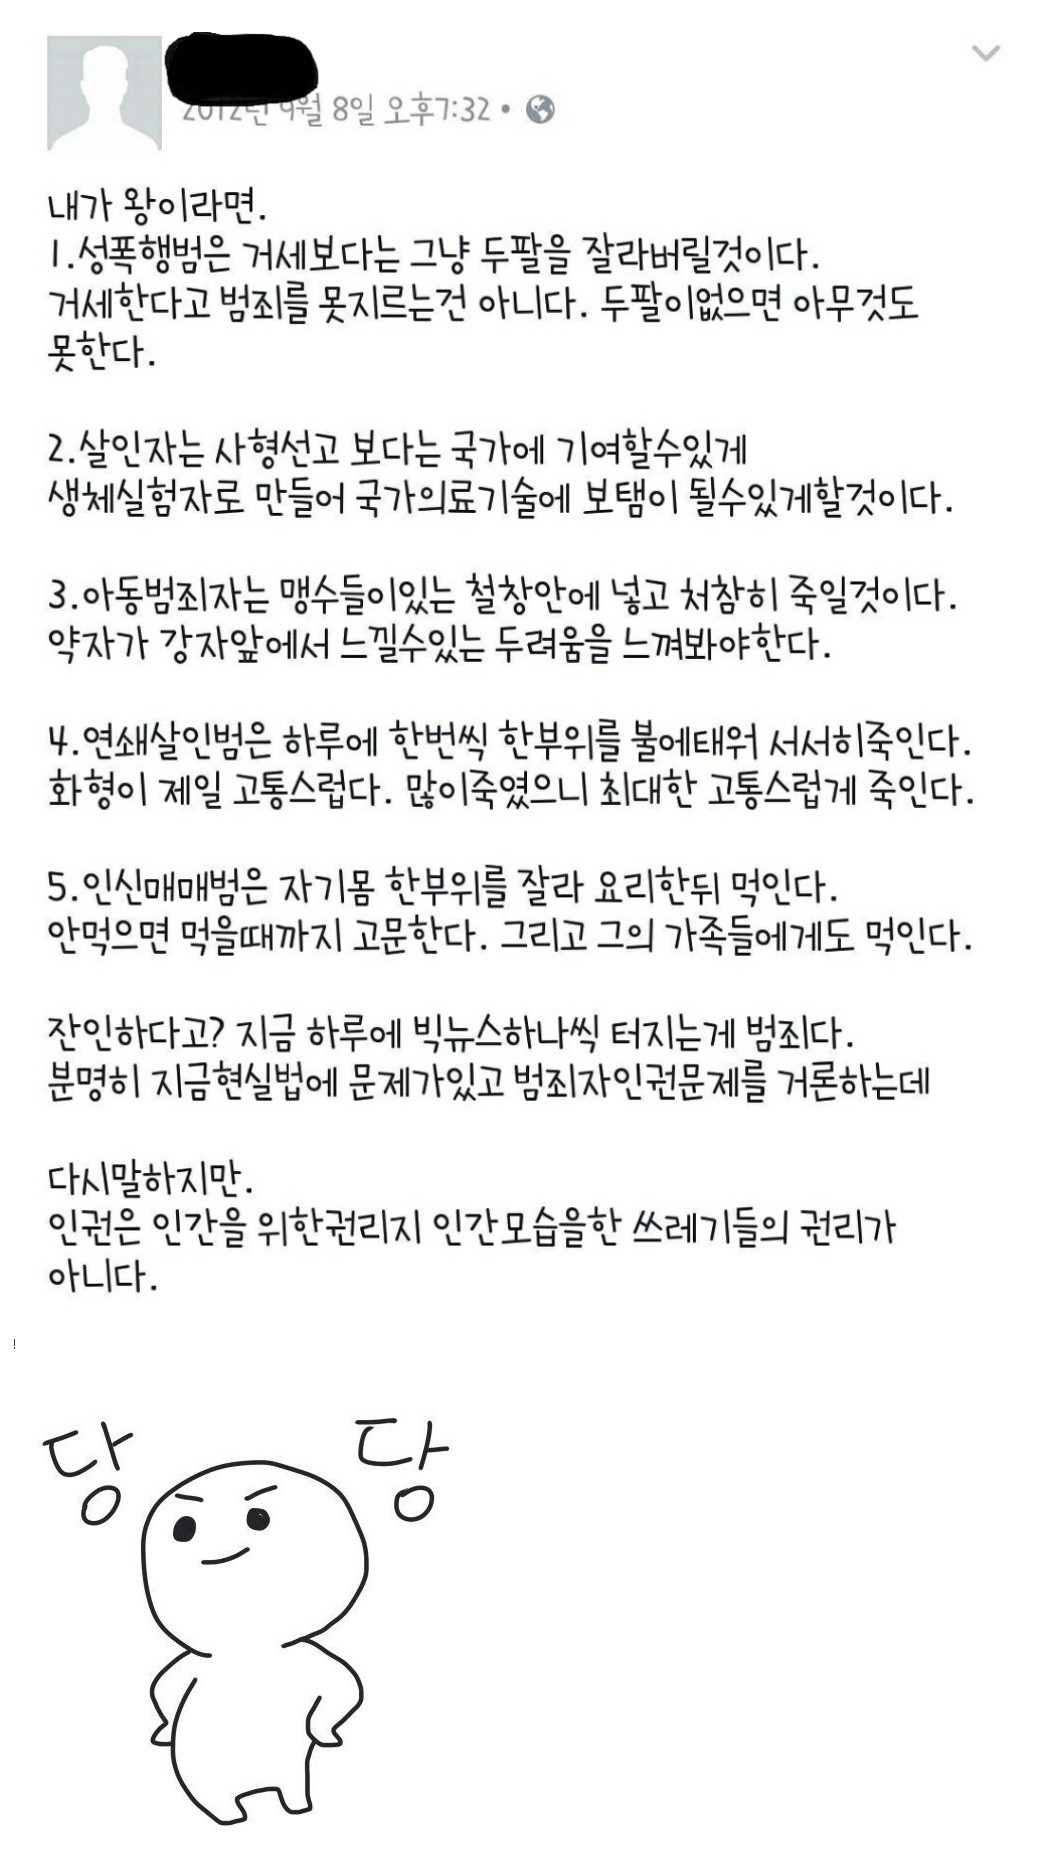 2012년 9월 8일 오후7:32
내가 왕이라면.
1.성폭행범은 거세보다는 그냥 두팔을 잘라버릴것이다.
거세한다고 범죄를 못지르는건 아니다. 두팔이없으면 아무것도
못한다.
2.살인자는 사형선고 보다는 국가에 기여할수있게
생체실험자로 만들어 국가의료기술에 보탬이 될수있게할것이다.
3.아동범죄자는 맹수들이있는 철창안에 넣고 처참히 죽일것이다.
약자가 강자앞에서 느낄수있는 두려움을 느껴봐야한다.
4.연쇄살인범은 하루에 한번씩 한부위를 불에태워 서서히죽인다.
화형이 제일 고통스럽다. 많이죽였으니 최대한 고통스럽게 죽인다.
5.인신매매범은 자기몸 한부위를 잘라 요리한뒤 먹인다.
안먹으면 먹을때까지 고문한다. 그리고 그의 가족들에게도 먹인다.
잔인하다고? 지금 하루에 빅뉴스하나씩 터지는게 범죄다.
분명히 지금현실법에 문제가있고 범죄자인권문제를 거론하는데
다시말하지만.
인권은 인간을 위한권리지 인간모습을한 쓰레기들의 권리가
아니다.
!
당 당